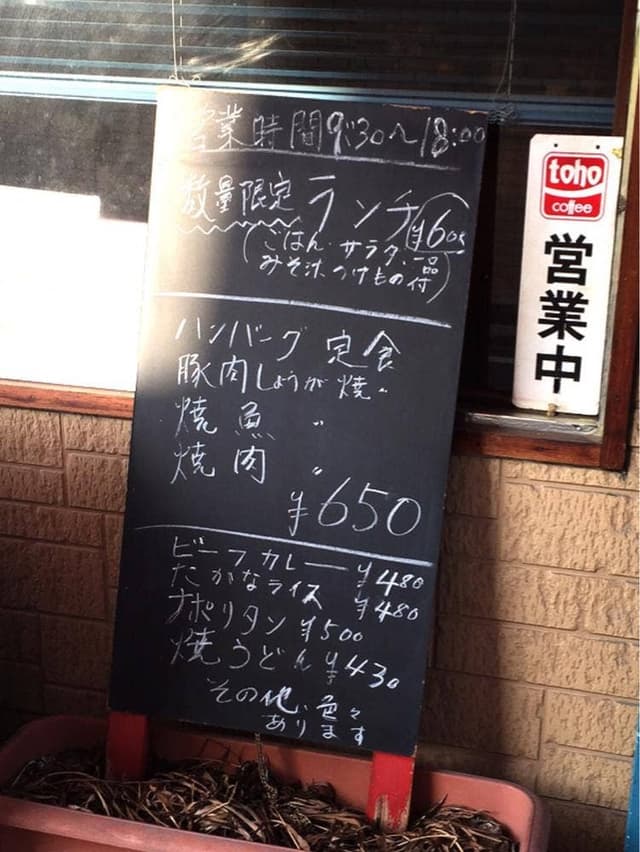 営業時間9:30〜18:00
数量限定ランチ ¥600
(ごはん、サラダ、
みそ汁、つけもの 一品付)
ハンバーグ 定食
豚肉しょうが焼 〃
焼魚 〃
焼肉 〃
¥650
ビーフカレー ¥480
たかなライス ¥480
ナポリタン ¥500
焼うどん ¥430
その他 色々
あります
toho
coffee
営業中